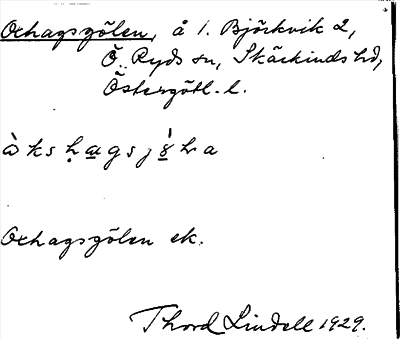 Oxhagsgölen, å 1. Björkvik 2,
Ö. Ryds sn, Skärkinds hd,
Östergötl. l.
Oxhagsgölen ek.
Thord Lindell 1929.